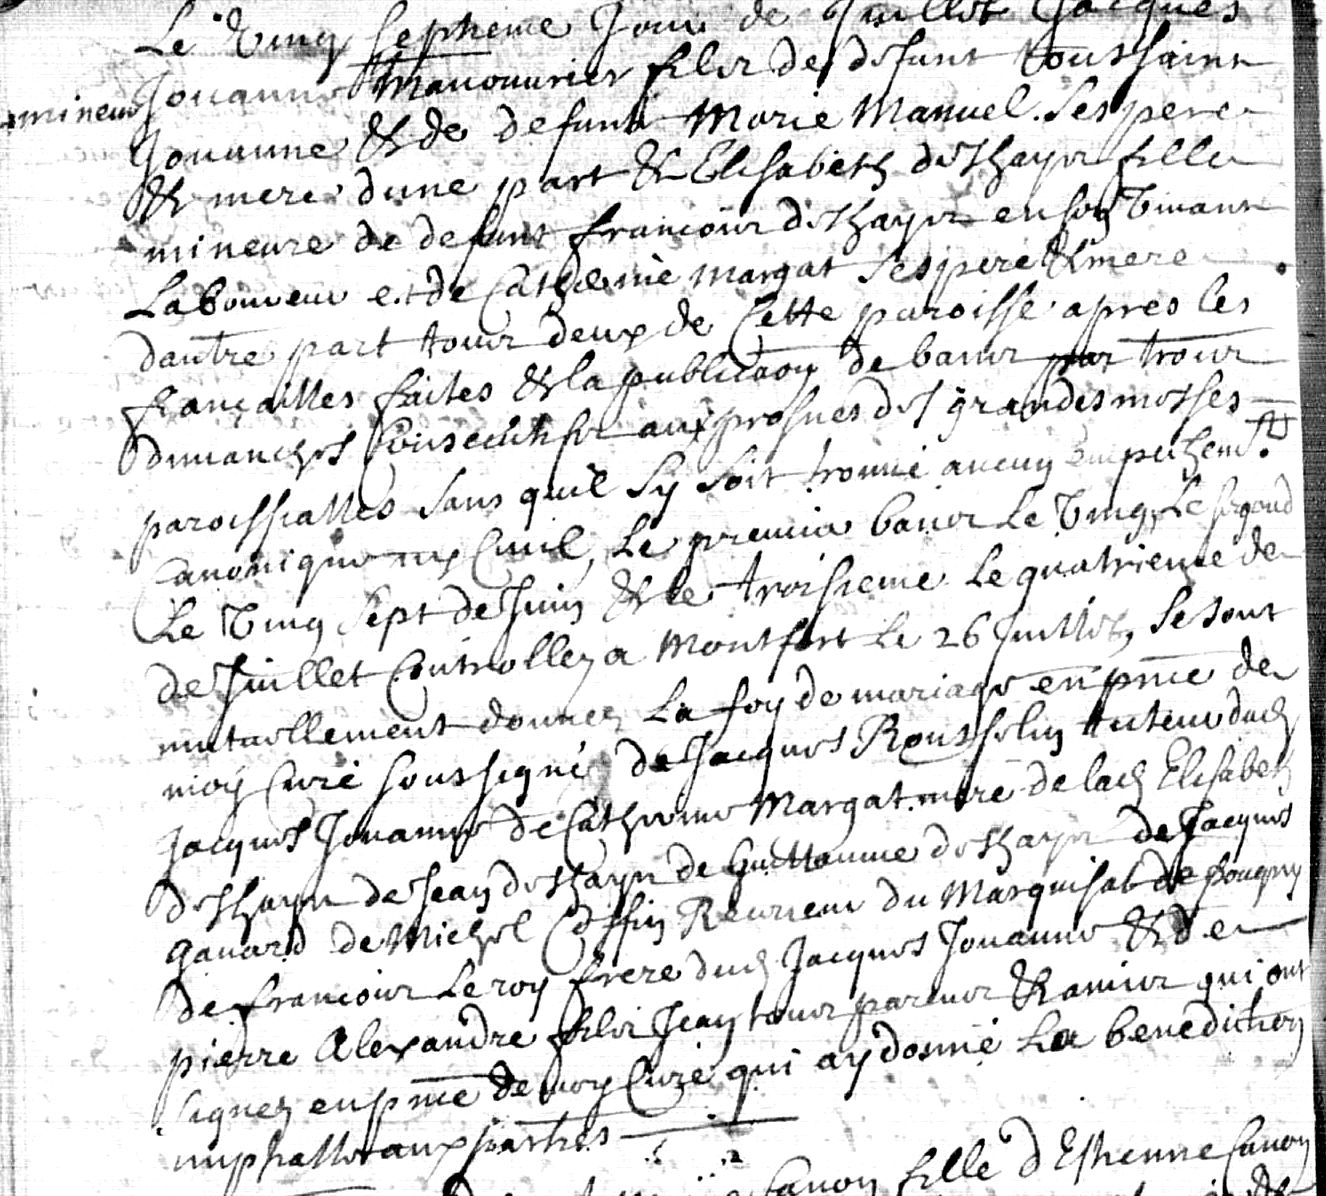 Le Vingt septieme Jour de Juillet Jacques
Jouanne Manouvrier fils de defunt Toussaint
mineur
Jouanne & de defunte Marie Manuel ses pere
& mere dune part & Elisabeth deshayes fille
mineure de defunt francois deshayes en son Vivant
Laboureur et de Catherine Margat ses pere & mere
dautre part tous deux de Cette paroisse apres les
fiançailles faites & la publicaon de bans par trois
dimanches Consecutifs aux prosnes des grandes messes
paroissialles sans quil sy soit trouvé aucun empechemt
Canonique ny Civil, Le premier bans Le Vingt, Le segond
Le Vingt sept de Juin & le troisieme Le quatrieme de
de Juillet Controllez a Montfort Le 26 Juillet, se sont
mutuellement donnez La foy de mariage en pnce de
moy Curé soussigné de Jacques Rousselin tuteur dud
Jacques Jouanne de Catherine Margat mere de lad Elisabeth
deshayes de Jean deshayes de Guillaume deshayes de Jacques
ganard de Michel Coffin Receveur du Marquisat de pougny
de francois Leroy frere dud Jacques Jouanne & de
pierre Alexandre fils Jean tous parens & amis qui ont
signez en pnce de moy Curé qui ay donné La benediction
nuptialle aux parties
Canon fille d'Estienne Canon